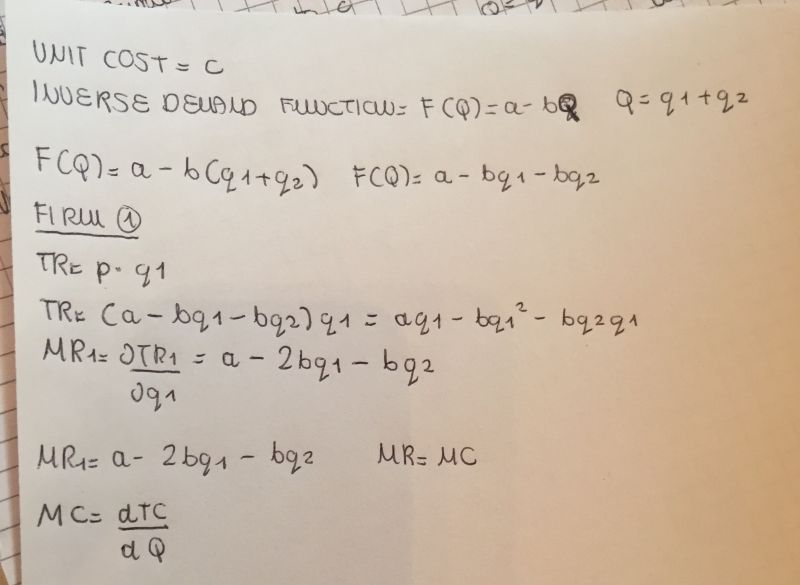 UNIT COST = C
INVERSE DEMAND FUNCTION= F(Q)= a- bQ Q= q1+q2
F(Q)= a - b(q1+q2) F(Q)= a - bq1 - bq2
FIRM ①
TR= p· q1
TR= (a - bq1 - bq2) q1 = aq1 - bq1² - bq2q1
MR1= ∂TR1 = a - 2bq1 - bq2
∂q1
MR1= a - 2bq1 - bq2 MR= MC
MC= dTC
dQ